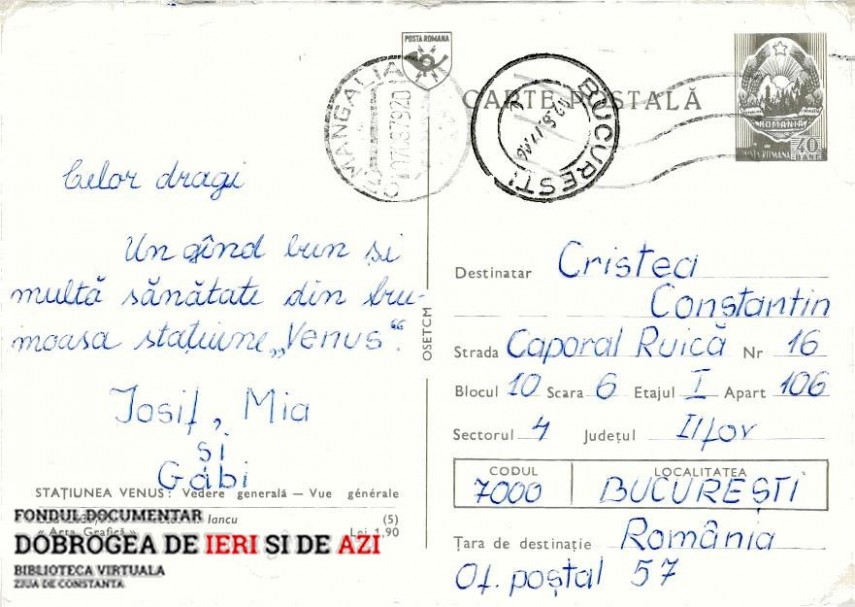 POSTA ROMANA
CARTE POSTALĂ
MANGALIA
BUCUREȘTI
ROMANIA
POSTA ROMANA 40 BANI
Celor dragi
Un gînd bun și
multă sănătate din fru-
moasa stațiune „Venus“.
Iosif, Mia
și
Gabi
STAȚIUNEA VENUS: Vedere generală — Vue générale
Iancu (5)
« Arta Grafică » Lei 1,90
OSETCM
Destinatar Cristea
Constantin
Strada Caporal Ruică Nr 16
Blocul 10 Scara 6 Etajul I Apart 106
Sectorul 4 Județul Ilfov
CODUL LOCALITATEA
7000 BUCUREȘTI
Țara de destinație România
Of. poștal 57
FONDUL DOCUMENTAR
DOBROGEA DE IERI SI DE AZI
BIBLIOTECA VIRTUALA
ZIUA DE CONSTANTA